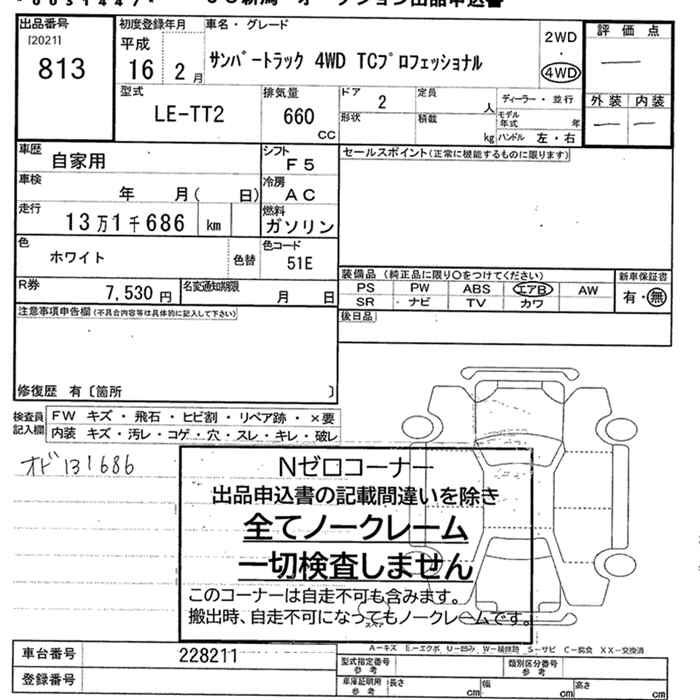 *0031447*
JU新潟 オークション出品申込書
出品番号
[2021]
813
初度登録年月
平成
16 2 月
車名・グレード
サンバートラック 4WD TCプロフェッショナル
2WD
・
4WD
評価点
—
外装 内装
— —
型式
LE-TT2
排気量
660
CC
ドア
2
定員
人
形状
積載
kg
ディーラー・並行
モデル年式 年
ハンドル 左・右
車歴
自家用
シフト
F5
車検
年 月( 日)
冷房
AC
走行
13万1千686 km
燃料
ガソリン
色
ホワイト
色替
色コード
51E
R券
7,530 円
名変通知期限
月 日
セールスポイント(正常に機能するものに限ります)
装備品(純正品に限り○をつけてください)
PS PW ABS エアB AW
SR ナビ TV カワ
新車保証書
有・無
後日品
注意事項申告欄(不具合内容等は具体的に記入して下さい)
修復歴 有〔箇所 〕
検査員記入欄
FW キズ・飛石・ヒビ割・リペア跡・×要
内装 キズ・汚レ・コゲ・穴・スレ・キレ・破レ
オド131686
Nゼロコーナー
出品申込書の記載間違いを除き
全てノークレーム
一切検査しません
このコーナーは自走不可も含みます。
搬出時、自走不可になってもノークレームです。
スペア
A-キズ E-エクボ U-凹み W-補修跡 S-サビ C-腐食 XX-交換済
車台番号
228211
登録番号
型式指定番号
参考
類別区分番号
参考
車庫証明用
参考
長さ cm 幅 cm 高さ cm